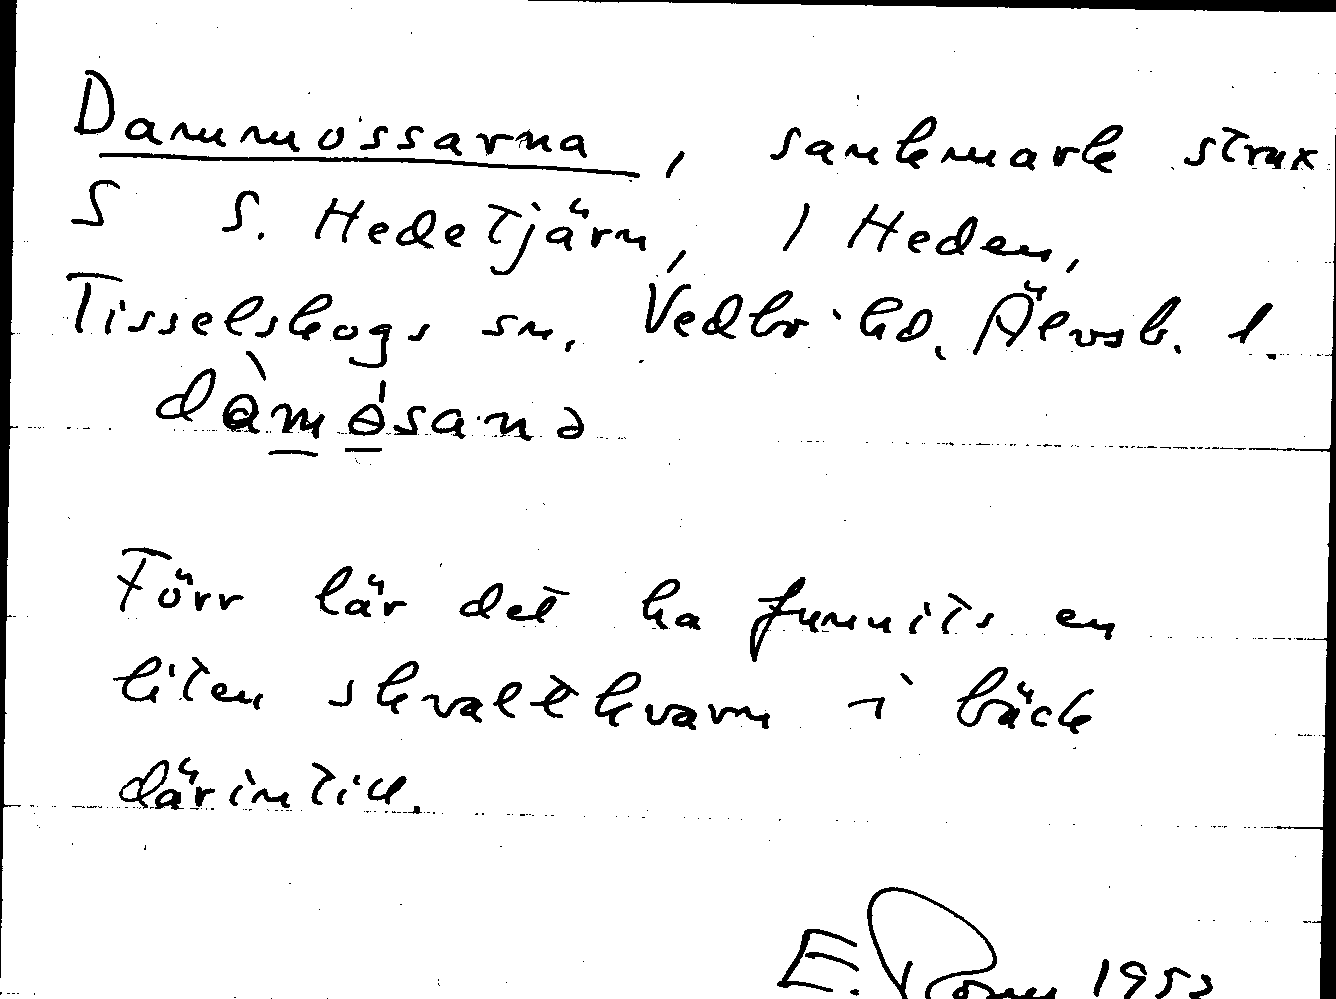 Dammossarna, sankmark strax
S S. Hedetjärn, i Heden,
Tisselskogs sn, Vedbo hd, Älvsb. l.
dàmåsanə
Förr lär det ha funnits en
liten skvaltkvarn i bäck
därintill.
E. 1953